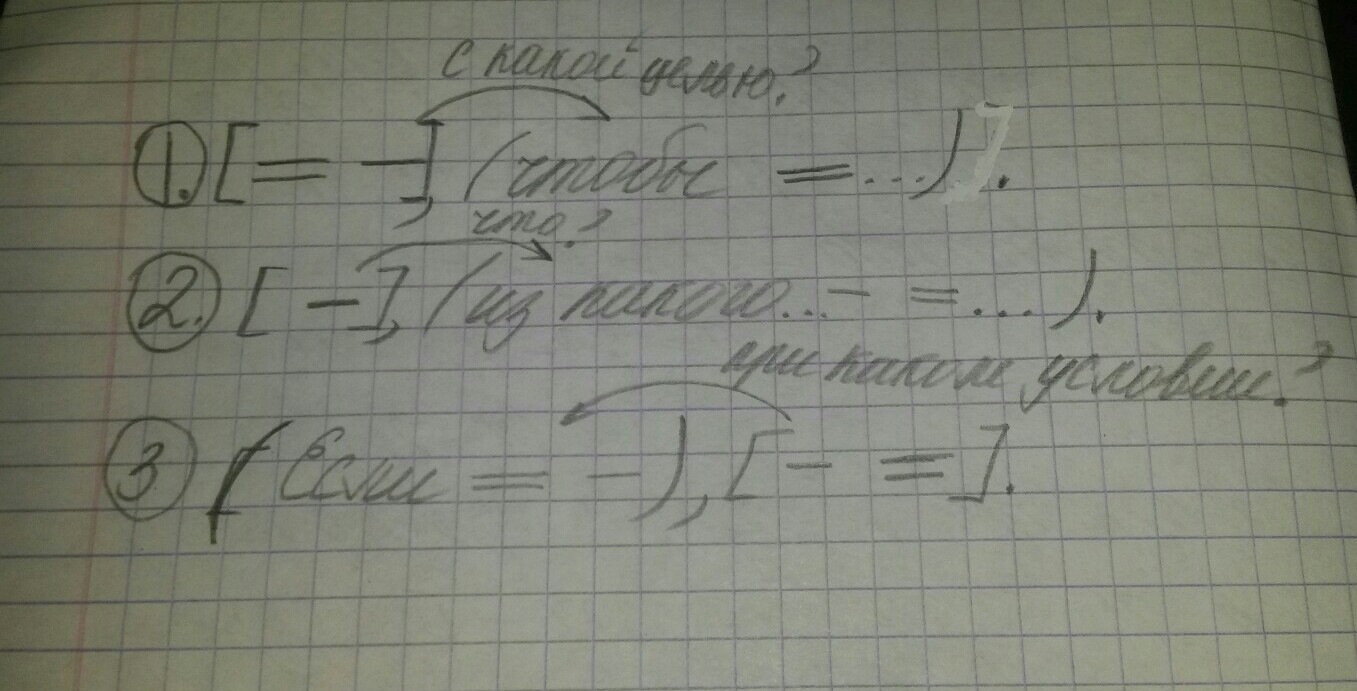 с какой целью?
1. [= —], (чтобы =...)].
что?
2. [—], (из какого...— =...).
при каком условии?
3 (Если = —), [— =].